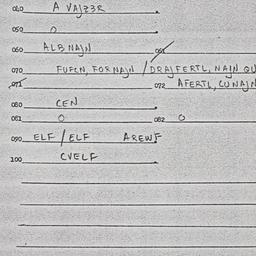 040 A VAJZ3R
050 0
060 ALB NAJN 061
070 FUFCN, FOR NAJN / DRAJ FERTL, NAJN QU
071 072 AFERTL, CU NAJN
080 CEN
081 0 082 0
090 ELF / ELF AREWF
100 CVELF